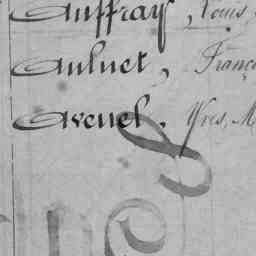 Auffray, Louis
Aulnet, Franç
Avenel. Yves, M